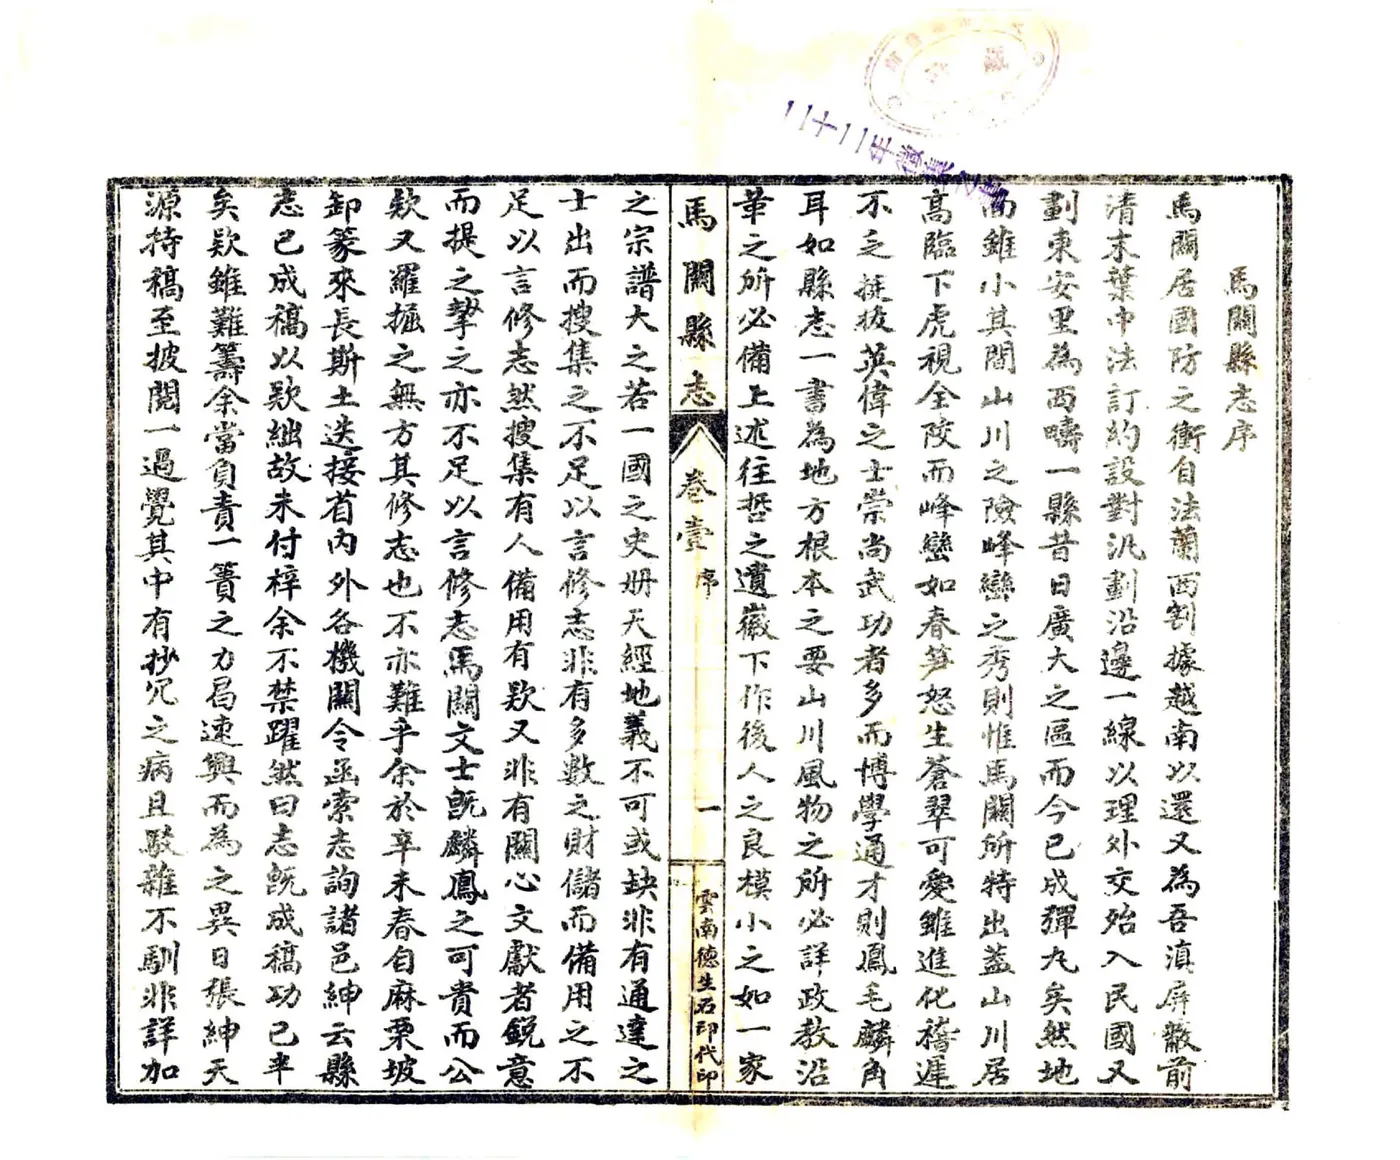 二十二年徵集之書
馬關縣志序
馬關居國防之衝自法蘭西割據越南以還又為吾滇屏蔽前
清末葉中法訂約設對汛劃沿邊一線以理外交殆入民國又
劃東安里為西疇一縣昔日廣大之區而今已成彈丸矣然地
面雖小其間山川之險峰巒之秀則惟馬關所特出蓋山川居
高臨下虎視全陂而峰巒如春笋怒生蒼翠可愛雖進化稽遲
不乏挺拔英偉之士崇尚武功者多而博學通才則鳳毛麟角
耳如縣志一書為地方根本之要山川風物之所必詳政教沿
革之所必備上述往哲之遺徽下作後人之良模小之如一家
馬關縣志
卷壹
序
一
雲南德生石印代印
之宗譜大之若一國之史册天經地義不可或缺非有通達之
士出而搜集之不足以言修志非有多數之財儲而備用之不
足以言修志然搜集有人備用有欵又非有關心文獻者銳意
而提之挈之亦不足以言修志馬關文士既麟鳳之可貴而公
欵又羅掘之無方其修志也不亦難乎余於辛未春自麻栗坡
卸篆來長斯土迭接省內外各機關令函索志詢諸邑紳云縣
志已成稿以欵絀故未付梓余不禁躍然曰志既成稿功已半
矣欵雖難籌余當負責一簣之力曷速興而為之異日張紳天
源持稿至披閱一過覺其中有抄冗之病且駁雜不馴非詳加